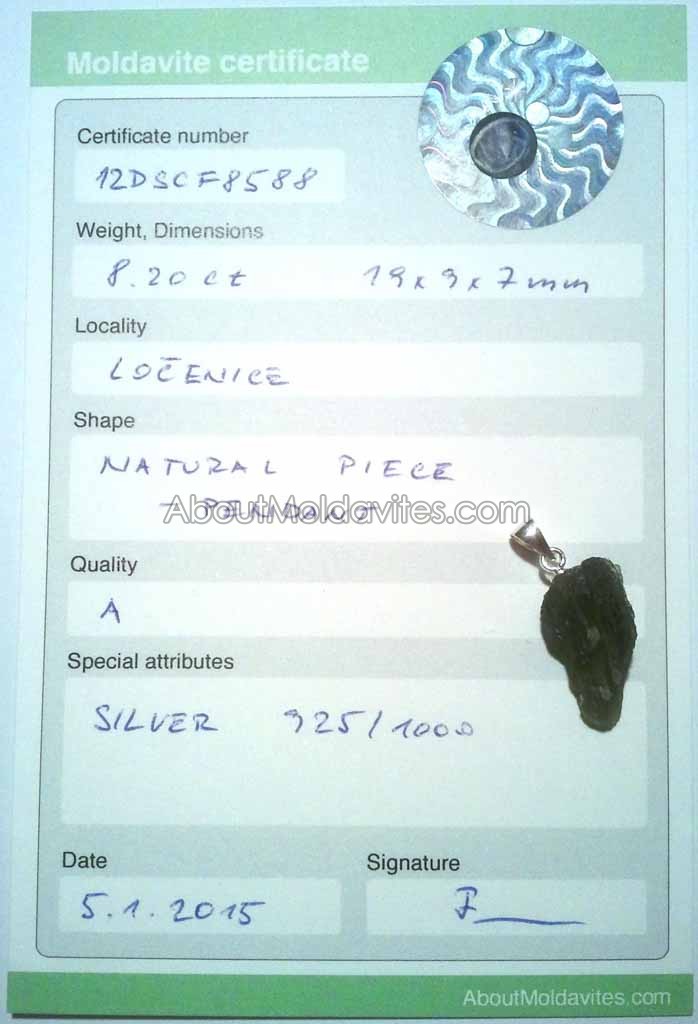 Moldavite certificate
Certificate number
12DSCF8588
Weight, Dimensions
8.20 ct 19x9x7mm
Locality
LOČENICE
Shape
NATURAL PIECE
- PENDANT
AboutMoldavites.com
Quality
A
Special attributes
SILVER 925/1000
Date Signature
5.1.2015
AboutMoldavites.com